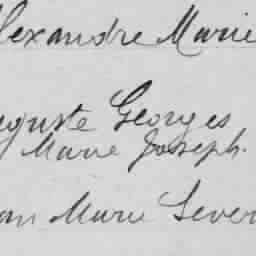 lexandre Marie
guste Georges
Marie Joseph.
an Marie Sever